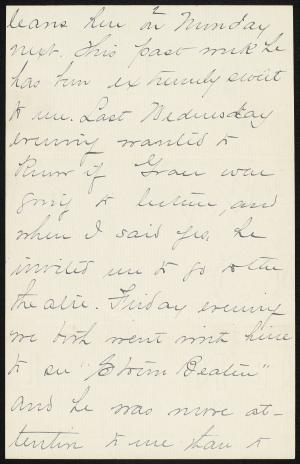 leaves here on Monday
next. This past week he
has been extremely sweet
to me. Last Wednesday
evening wanted to
know if Grace were
going to lecture, and
when I said yes, he
invited me to go to the
theatre. Friday evening
we both went with him
to see "Storm Beaten"
and he was more at-
tentive to me than to